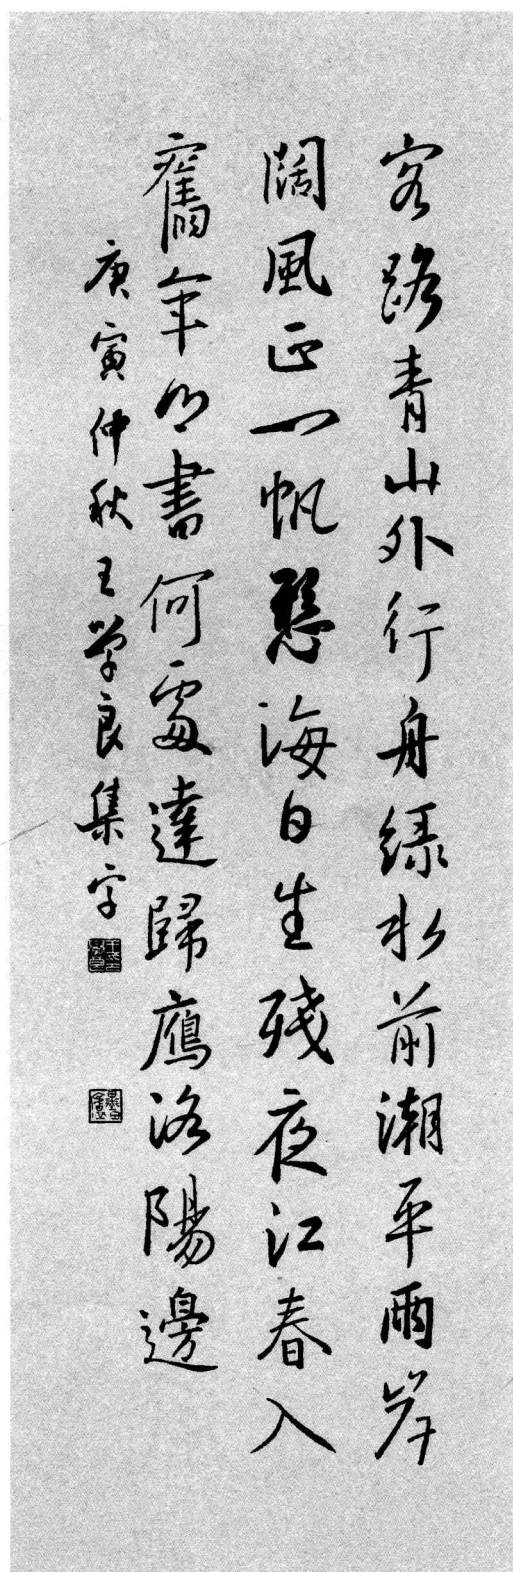 客路青山外行舟绿水前潮平兩岸
闊風正一帆懸海日生殘夜江春入
舊年乡書何處達歸鴈洛陽邊
庚寅仲秋王學良集字